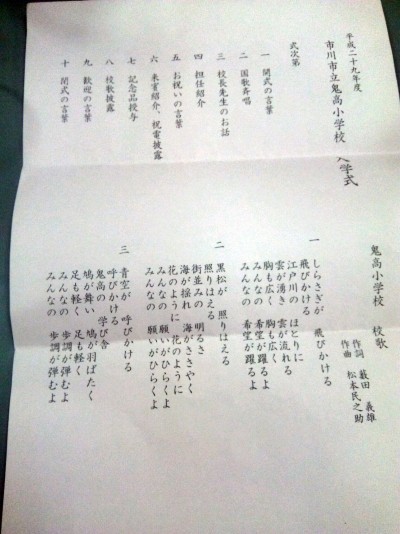 平成二十九年度
市川市立鬼高小学校 入学式
式次第
一 開式の言葉
二 国歌斉唱
三 校長先生のお話
四 担任紹介
五 お祝いの言葉
六 来賓紹介、祝電披露
七 記念品授与
八 校歌披露
九 歓迎の言葉
十 閉式の言葉
鬼高小学校 校歌
作詞 藪田 義雄
作曲 松本民之助
一 しらさぎが 飛びかける
飛びかける
江戸川の ほとりに
雲が湧き 雲が流れる
胸も広く 胸も広く
みんなの 希望が躍るよ
みんなの 希望が躍るよ
二 黒松が 照りはえる
照りはえる
街並みの 明るさ
海が揺れ 海がささやく
花のように 花のように
みんなの 願いがひらくよ
みんなの 願いがひらくよ
三 青空が 呼びかける
呼びかける
鬼高の 学び舎
鳩が舞い 鳩が羽ばたく
足も軽く 足も軽く
みんなの 歩調が弾むよ
みんなの 歩調が弾むよ